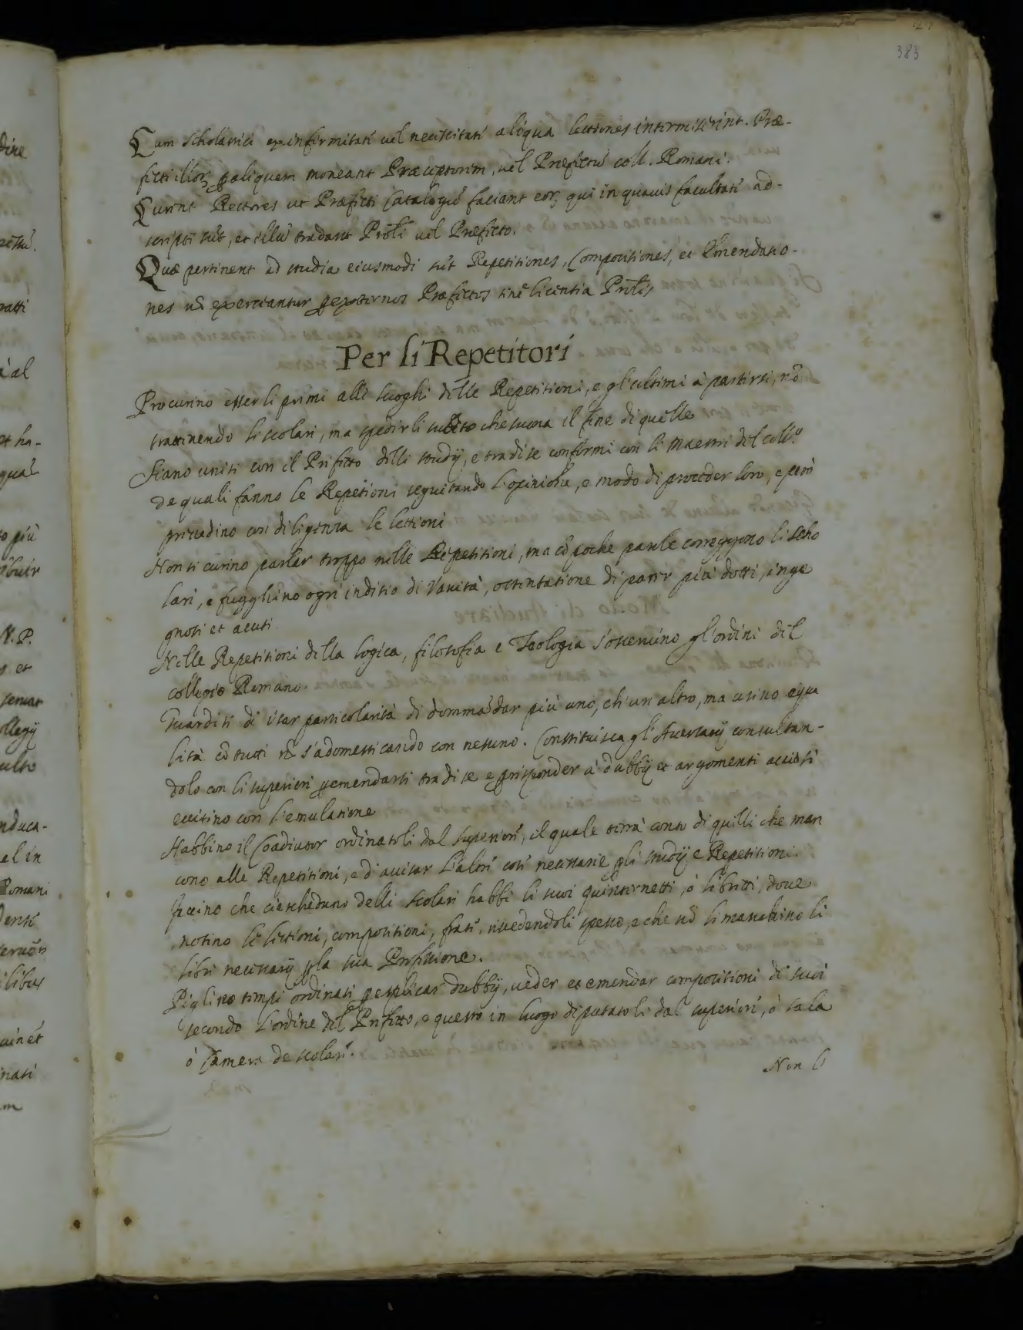 383
Cum scholastici ex infirmitati vel necessitati aliqua lectiones intermiserint. Præ-
fecti illor~ p aliquem moneant Præceptorem, vel Præfectũ coll. Romani.
Curent Rectores ut Præfecti Catalogũ faciant eor~, qui in quavis facultati ad-
scripti sũt, et illũ tradant Præfecto.
Quæ pertinent ad studia eiusmodi sũt Repetitiones, Compositiones, et Emendatio-
nes nõ exerceantur p externos Præfectos sine licentia
Per li Repetitori
Procurino esser li primi alli luoghi delle Repetitioni, e gl'ultimi à partirsi, nõ
trattinendo li scolari, ma spedirli subito che suona il fine di quelle
Siano uniti con il Prifetto delli studij, e tra di se conformi con li maestri del coll.o
de quali fanno le Repetioni seguitando l'opinioni, e modo di proceder loro, e però
con diligenza le lettioni
Non si curino parlar troppo nelle Repetitioni, ma cõ poche parole correggono li scho
lari, e fugghino ogni inditio di Vanità, ostintatione di parer più dotti, inge
gnosi et acuti
Nille Repetitioni della logica, filosofia e Teologia s'osservino gl'ordini dil
collegio Romano.
Guardisi di usar particolarità di dommãdar più uno, ch'un altro, ma usino equa
lità cõ tutti nõ s'adomesticando con nessuno. Constituisca gl'Aversarij consultan-
dolo con li superiori p emendarsi tra di se e p risponder à dubbij et argomenti acciò si
eccitino con l'emulatione
Habbino il Coadiutor ordinatoli dal superiori, il quale terrà conto di quilli che man
cono alle Repetitioni, e d'avisar l'altri cosi necessarie p li studij e Repetitioni.
Faccino che ciescheduno delli scolari habbi li suoi quinternetti, ò libritti, dove
notino le lettioni, compositioni, frasi, rivedendoli spesso, e che nõ li manchino li
libri necessarij p la sua Professione.
Piglino tempi ordinati p esplicar dubbij, veder et emendar compositioni di suoi
secondo l'ordine del Prifetto, e questo in luogo diputatoli dal superiori, ò sala
ò Camera de scolari.
Non li